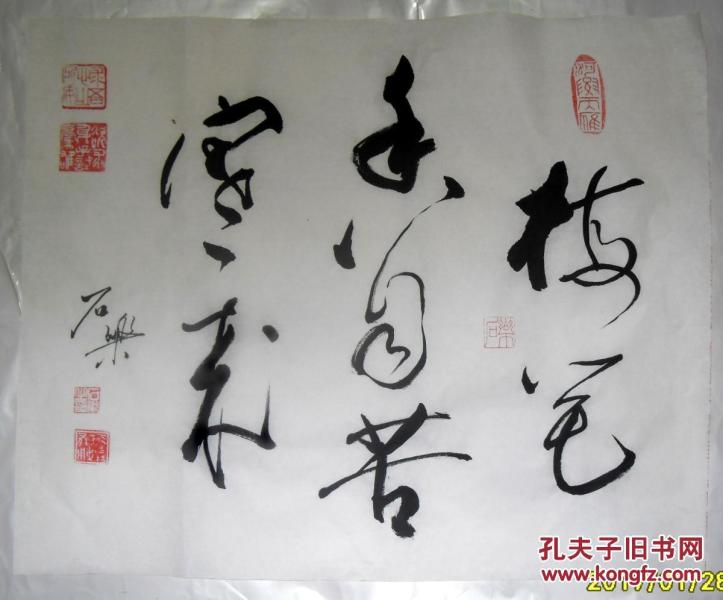 梅花
香自苦
寒来
石樂
孔夫子旧书网
www.kongfz.com
2017/01/28